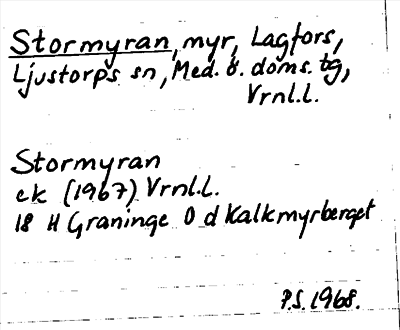 Stormyran, myr, Lagfors,
Ljustorps sn, Med. ö. doms. tg,
Vrnl.L.
Stormyran
ek (1967) Vrnl.L.
18 H Graninge 0 d Kalkmyrberget
P.S. 1968.